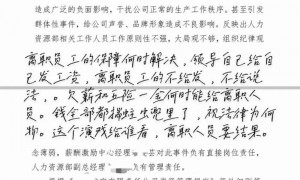 造成广泛的负面影响。干扰公司正常的生产工作秩序。甚至引发
群体性事件，给公司声誉、品牌形象造成不良影响。反映出人力
资源部相关工作人员工作原则性不强。大局观不够，组织纪律观
离职员工的保障何时解决，领导自己给自
己发工资，离职员工的不给发，不给说
法，。欠薪和五险一金何时能给离职人
员。钱全部都揣兜里了，视法律为何
物。这个演戏给谁看，离职人员要结果。
念薄弱，薪酬激励中心经理 对此事件负有直接岗位责任，
人力资源部副总经理 负有管理责任。